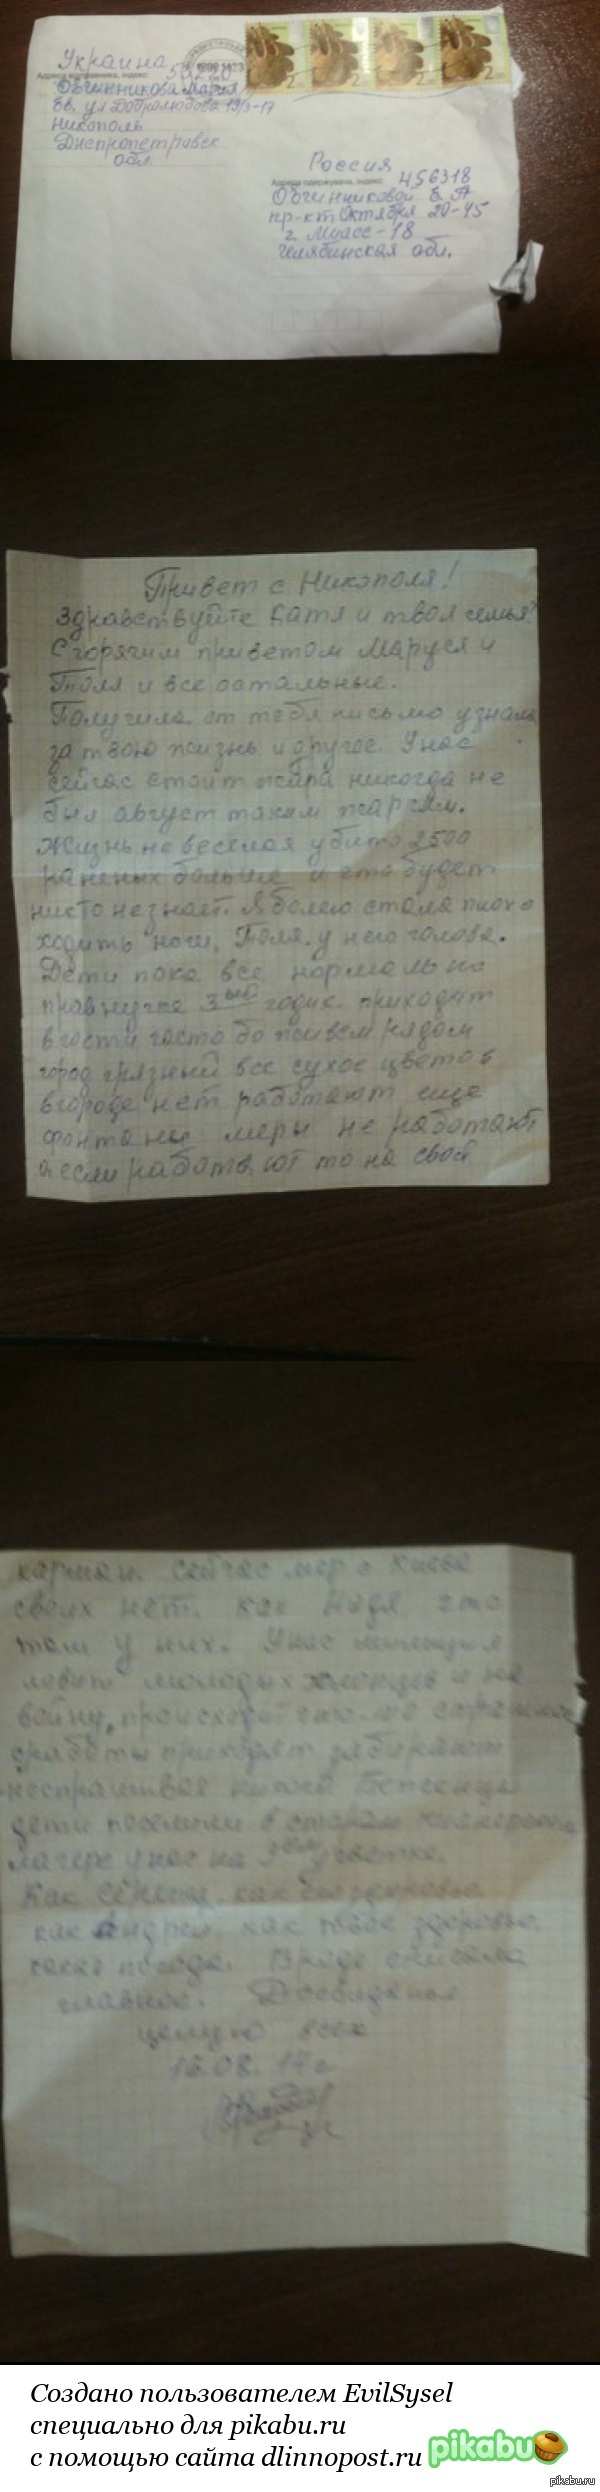 Украина
Адреса відправника, індекс
Овчинникова Мария
ул Добролюбова 19/3-17
Никополь
Днепропетровск
обл.
2.00
2.00
2.00
2.00
Россия
Адреса одержувача, індекс 456318
Овчинниковой Е. А
пр-кт Октября 20-45
г. Миасс-18
Челябинская обл.
Привет с Никополя!
Здравствуйте Катя и твоя семья!
С горячим приветом Маруся и
Толя и все остальные.
Получила от тебя письмо узнала
за твою жизнь и другое. У нас
сейчас стоит жара никогда не
был август таким жарким.
Жизнь не веселая убито 2500
раненых больше и что будет
никто не знает. Я болею стала плохо
ходить ноги, Толя. у него голова.
Дети пока все нормально
правнучке 3ый годик приходит
в гости часто бо живем рядом
город грязный все сухое цветов
в городе нет работают еще
фонтаны меры не работают
а если работают то на свой
карман. Сейчас мер с Киева
своих нет. Как Надя что
там у них. У нас милиция
ловит молодых хлопцев и на
войну, происходит что-то страшное
с работы приходят забирают
не спрашивая никого. Беженцы
дети поселили в старом пионерском
лагере у нас на 3ем участке.
Как Сережа, как его здоровье
как Андрей как твое здоровье,
какая погода. Вроде описала
главное. Досвиданья
целую всех
16.08.14 г
Создано пользователем EvilSysel
специально для pikabu.ru
с помощью сайта dlinnopost.ru pikabu
pikabu.ru